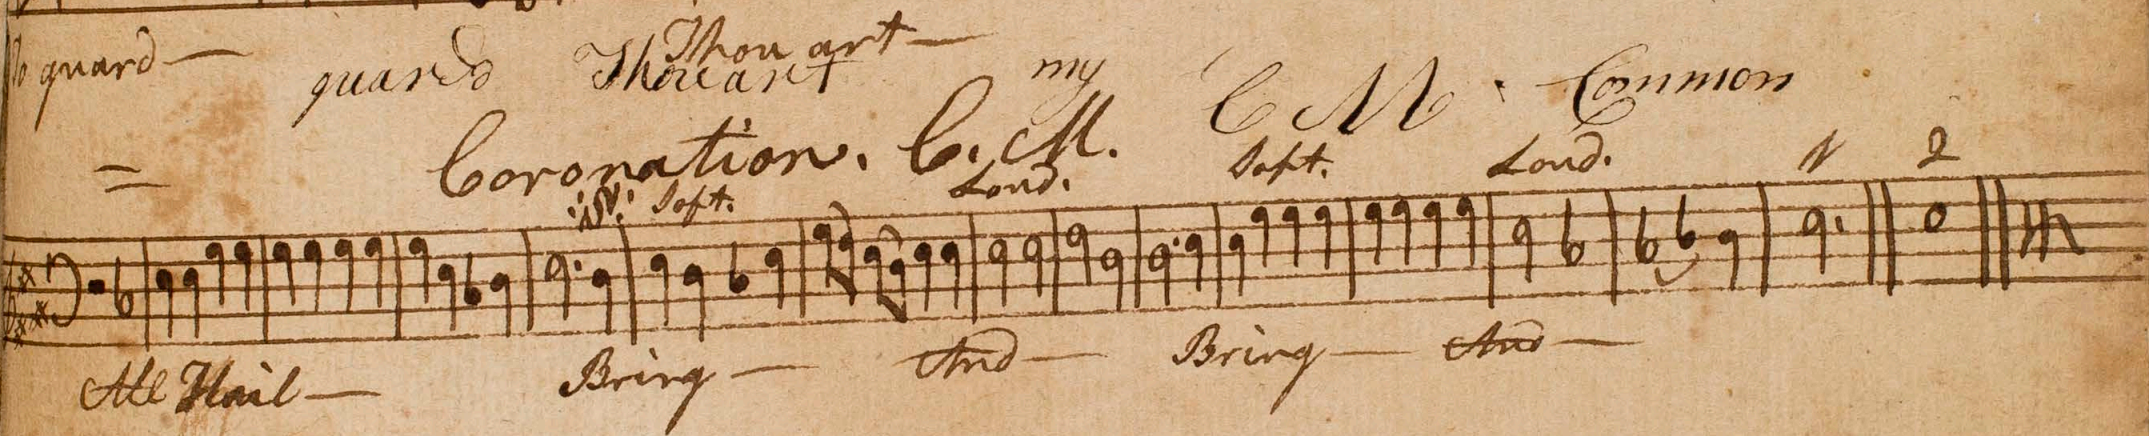 guard —
guard Thou art Thou art — my C M . Common
Coronation. C. M.
:S: Soft. Loud. Soft. Loud. 1 2
All Hail — Bring — And — Bring — And —